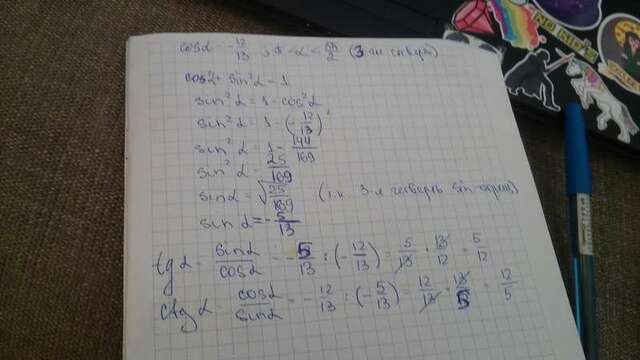 cosα = -12/13 ; π < α < 3π/2 (3-я четверть)
cos²α + sin²α = 1
sin²α = 1 - cos²α
sin²α = 1 - (-12/13)²
sin²α = 1 - 144/169
sin²α = 25/169
sinα = √25/169 (т.к. 3-я четверть sin отриц)
sinα = -5/13
tgα = sinα/cosα = -5/13 : (-12/13) = 5/13 · 13/12 = 5/12
ctgα = cosα/sinα = -12/13 : (-5/13) = 12/13 · 13/5 = 12/5
NO KID'S